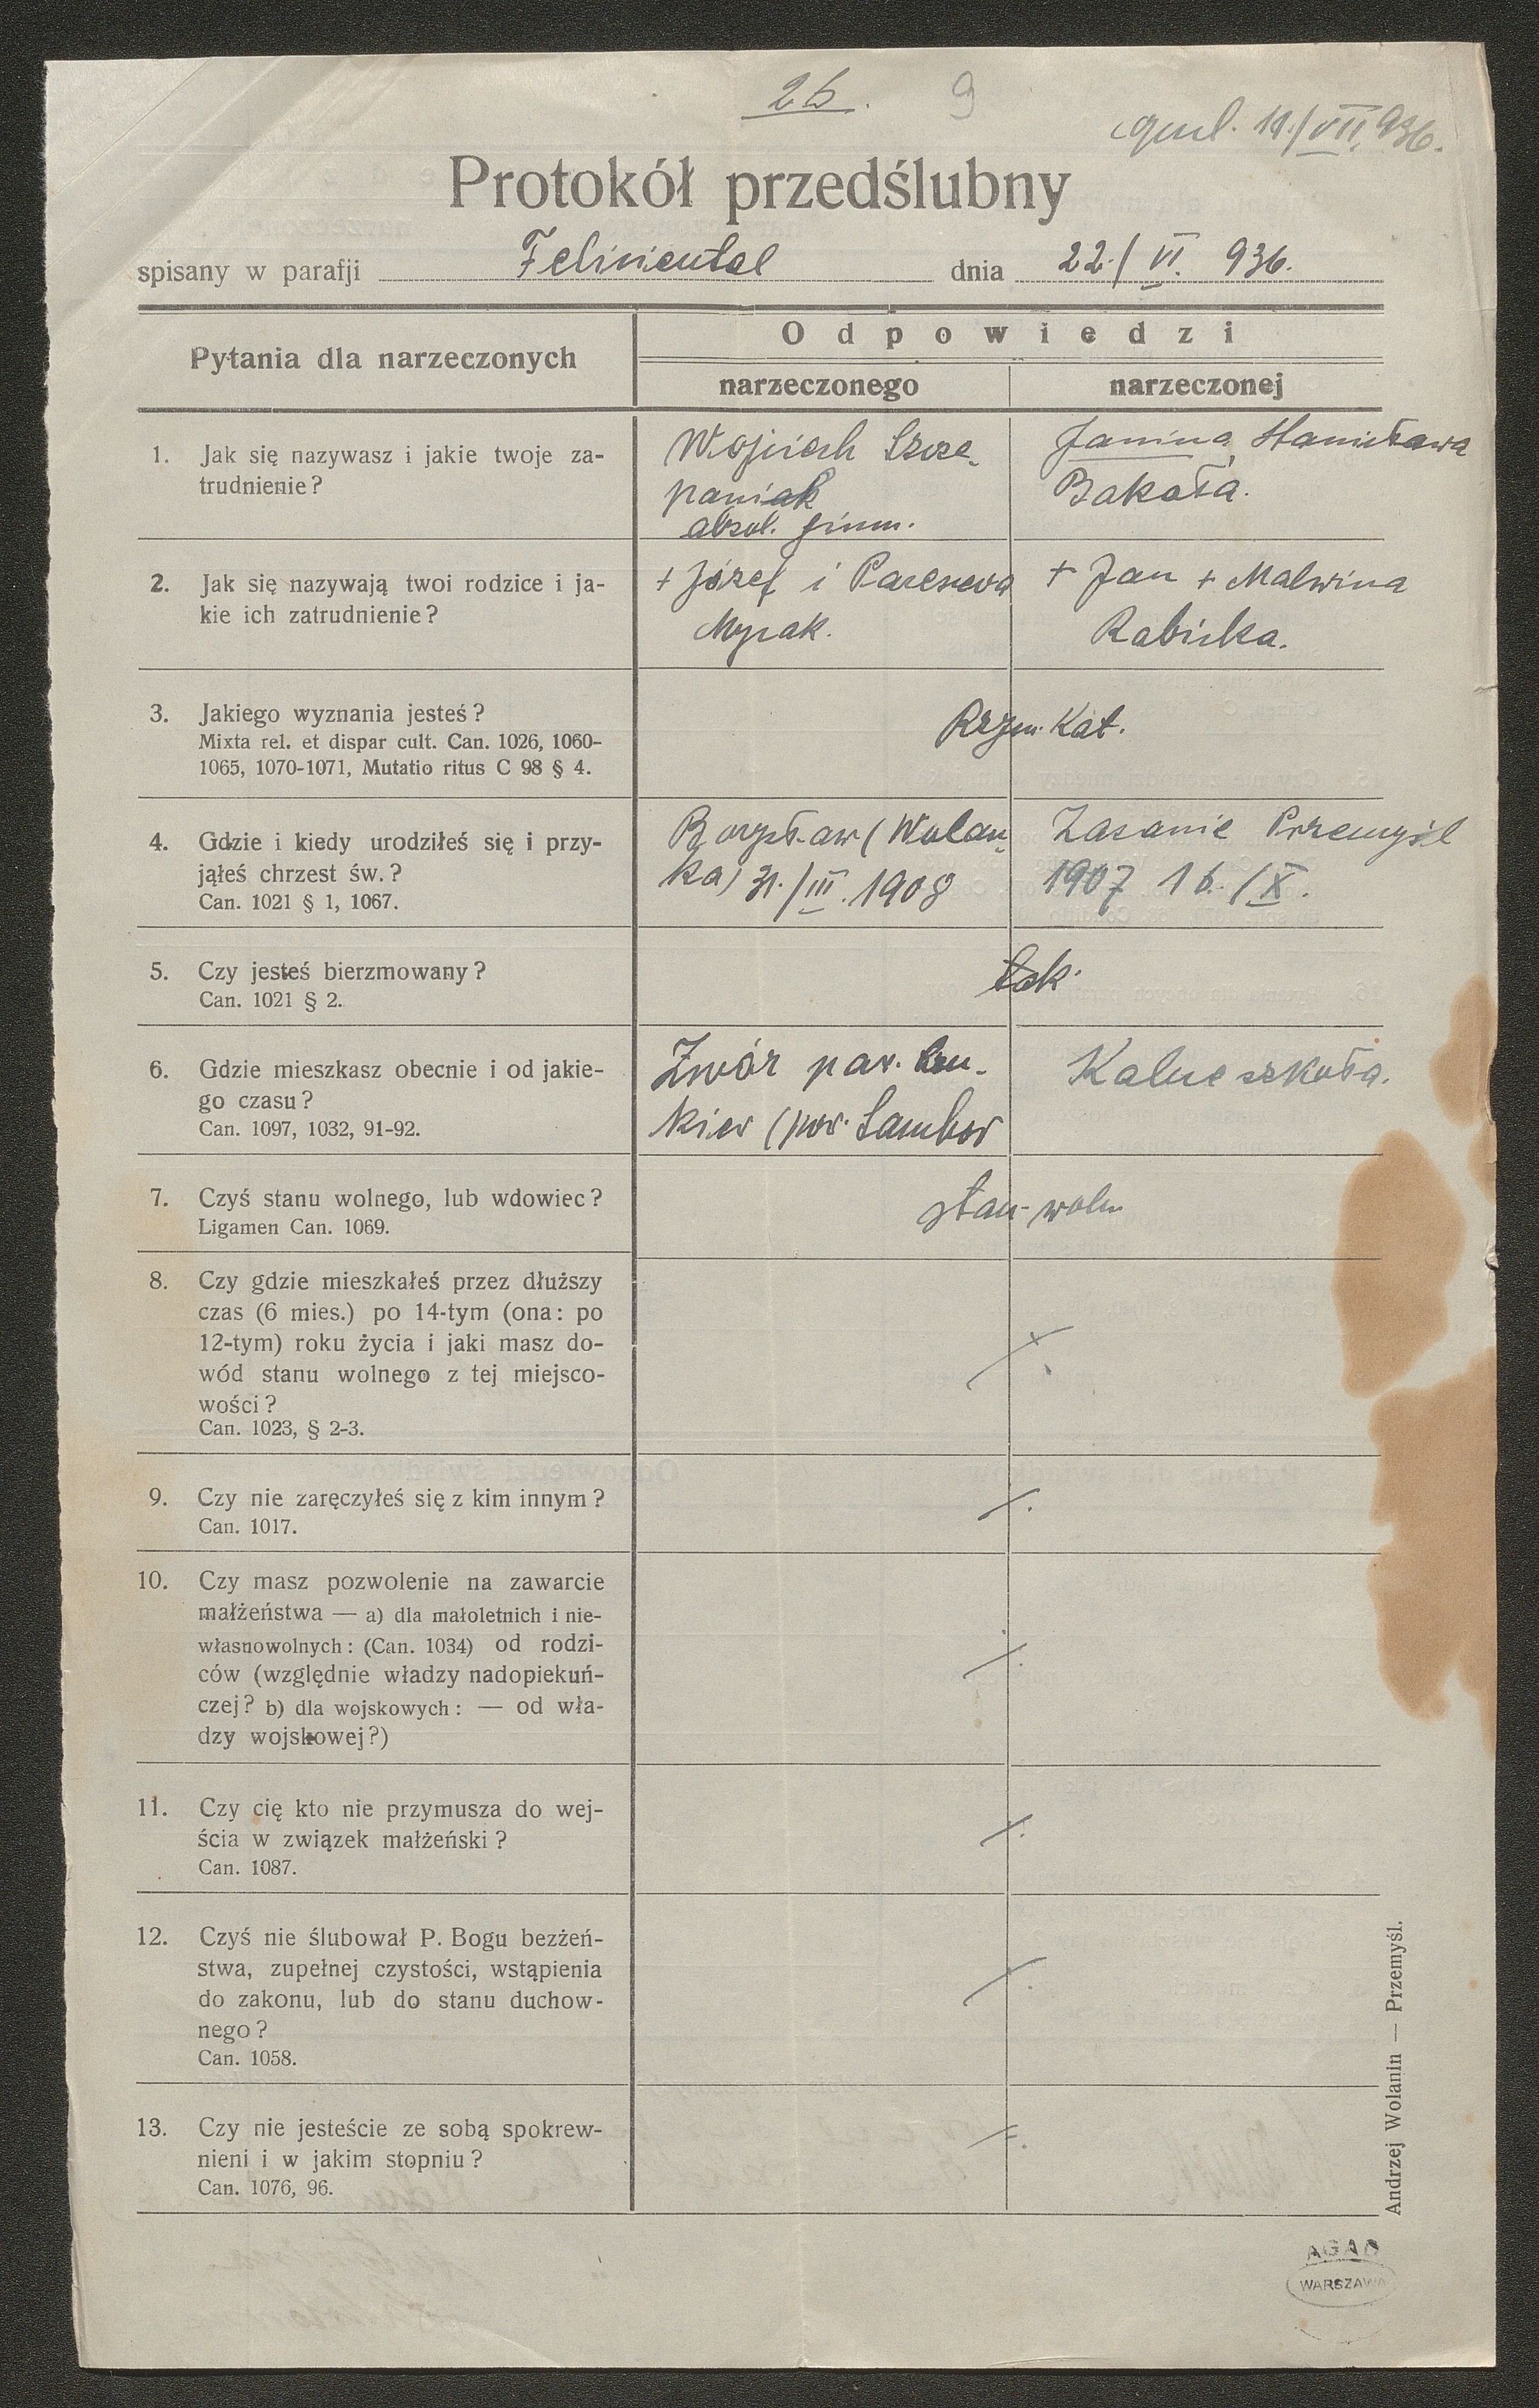 26. 9
11/VII. 936.
Protokół przedślubny
spisany w parafji Feliziental dnia 22./VI. 936.
Pytania dla narzeczonych
Odpowiedzi
narzeczonego narzeczonej
1. Jak się nazywasz i jakie twoje za-
trudnienie?
Wojciech Szcze-
paniak
absol. gimn.
Janina Stanisława
Bakoła.
2. Jak się nazywają twoi rodzice i ja-
kie ich zatrudnienie?
+ Józef i Parasnewa
Mycak.
+ Jan + Malwina
Rabicka.
3. Jakiego wyznania jesteś?
Mixta rel. et dispar cult. Can. 1026, 1060-
1065, 1070-1071, Mutatio ritus C 98 § 4.
Rzym. Kat.
4. Gdzie i kiedy urodziłeś się i przy-
jąłeś chrzest św.?
Can. 1021 § 1, 1067.
Borysław (Wolan-
ka) 31./III. 1908
Zasanie Przemyśl
1907 16./X.
5. Czy jesteś bierzmowany?
Can. 1021 § 2.
tak
6. Gdzie mieszkasz obecnie i od jakie-
go czasu?
Can. 1097, 1032, 91-92.
Zwór par. Łu-
kier (pow. Sambor
Kalne szkoła.
7. Czyś stanu wolnego, lub wdowiec?
Ligamen Can. 1069.
stan woln
8. Czy gdzie mieszkałeś przez dłuższy
czas (6 mies.) po 14-tym (ona: po
12-tym) roku życia i jaki masz do-
wód stanu wolnego z tej miejsco-
wości?
Can. 1023, § 2-3.
9. Czy nie zaręczyłeś się z kim innym?
Can. 1017.
10. Czy masz pozwolenie na zawarcie
małżeństwa — a) dla małoletnich i nie-
własnowolnych: (Can. 1034) od rodzi-
ców (względnie władzy nadopiekuń-
czej? b) dla wojskowych: — od wła-
dzy wojskowej?)
11. Czy cię kto nie przymusza do wej-
ścia w związek małżeński?
Can. 1087.
12. Czyś nie ślubował P. Bogu bezżeń-
stwa, zupełnej czystości, wstąpienia
do zakonu, lub do stanu duchow-
nego?
Can. 1058.
13. Czy nie jesteście ze sobą spokrew-
nieni i w jakim stopniu?
Can. 1076, 96.
Andrzej Wolanin — Przemyśl.
AGAD
WARSZAWA